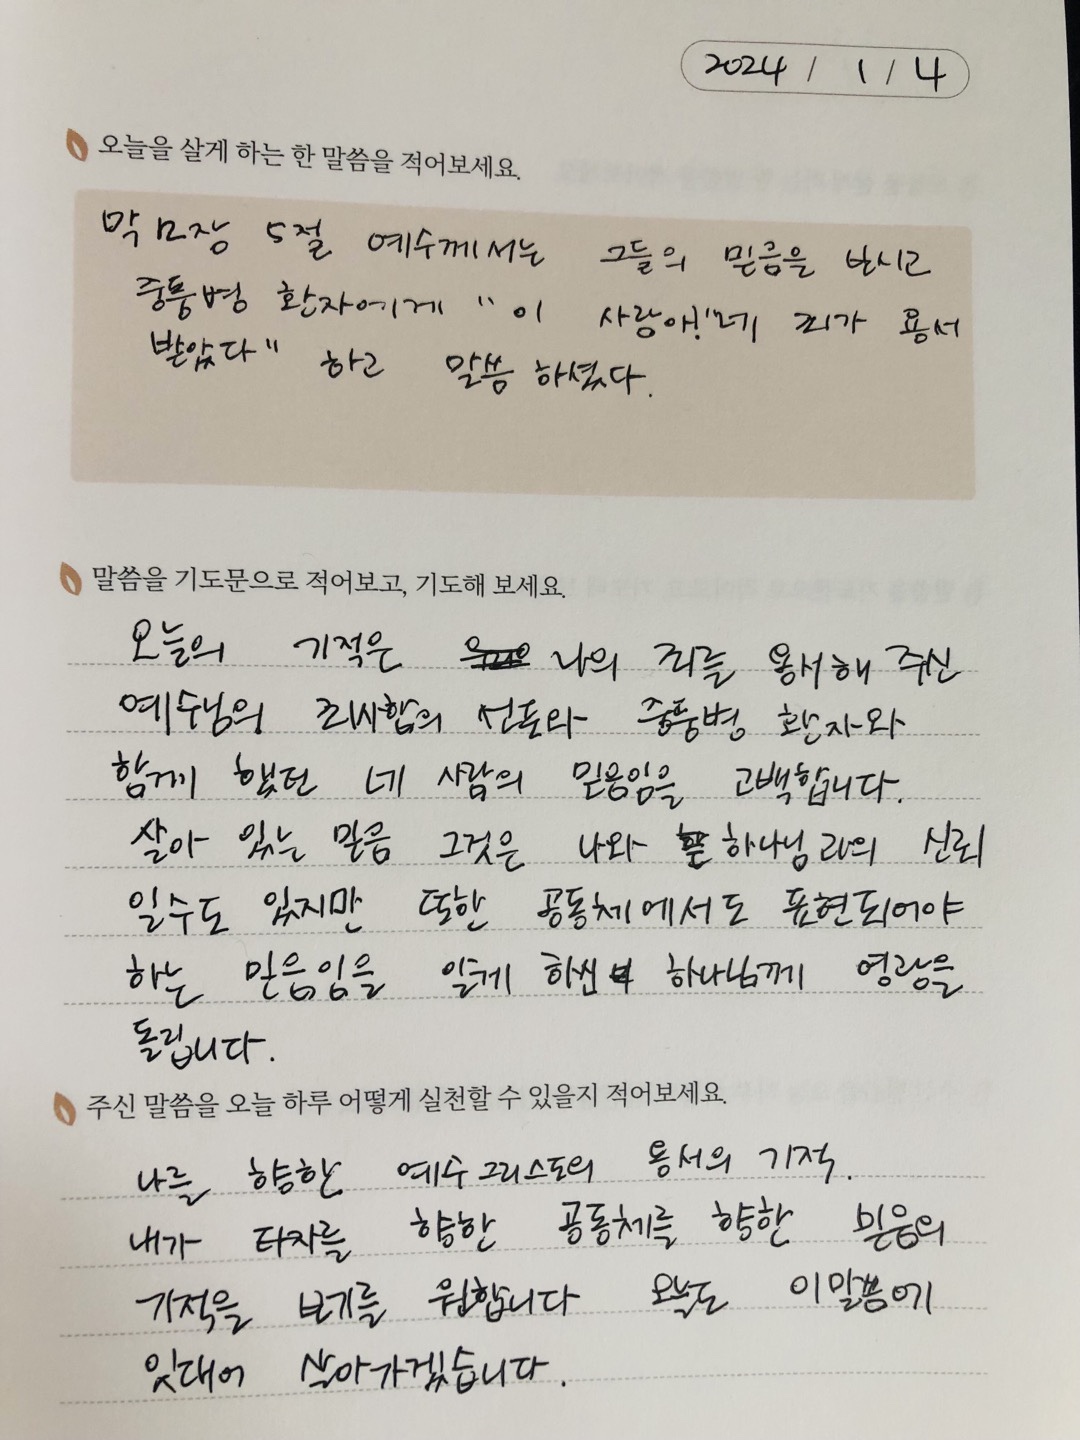 2024 / 1 / 4
오늘을 살게 하는 한 말씀을 적어보세요.
막 2장 5절 예수께서는 그들의 믿음을 보시고
중풍병 환자에게 "이 사람아! 네 죄가 용서
받았다" 하고 말씀 하셨다.
말씀을 기도문으로 적어보고, 기도해 보세요.
오늘의 기적은 나의 죄를 용서해 주신
예수님의 죄사함의 선포와 중풍병 환자와
함께 했던 네 사람의 믿음임을 고백합니다.
살아 있는 믿음 그것은 나와 하나님과의 신뢰
일수도 있지만 또한 공동체에서도 표현되어야
하는 믿음임을 알게 하신 하나님께 영광을
돌립니다.
주신 말씀을 오늘 하루 어떻게 실천할 수 있을지 적어보세요.
나를 향한 예수그리스도의 용서의 기적.
내가 타자를 향한 공동체를 향한 믿음의
기적을 보기를 원합니다 오늘도 이말씀에
잇대어 살아가겠습니다.